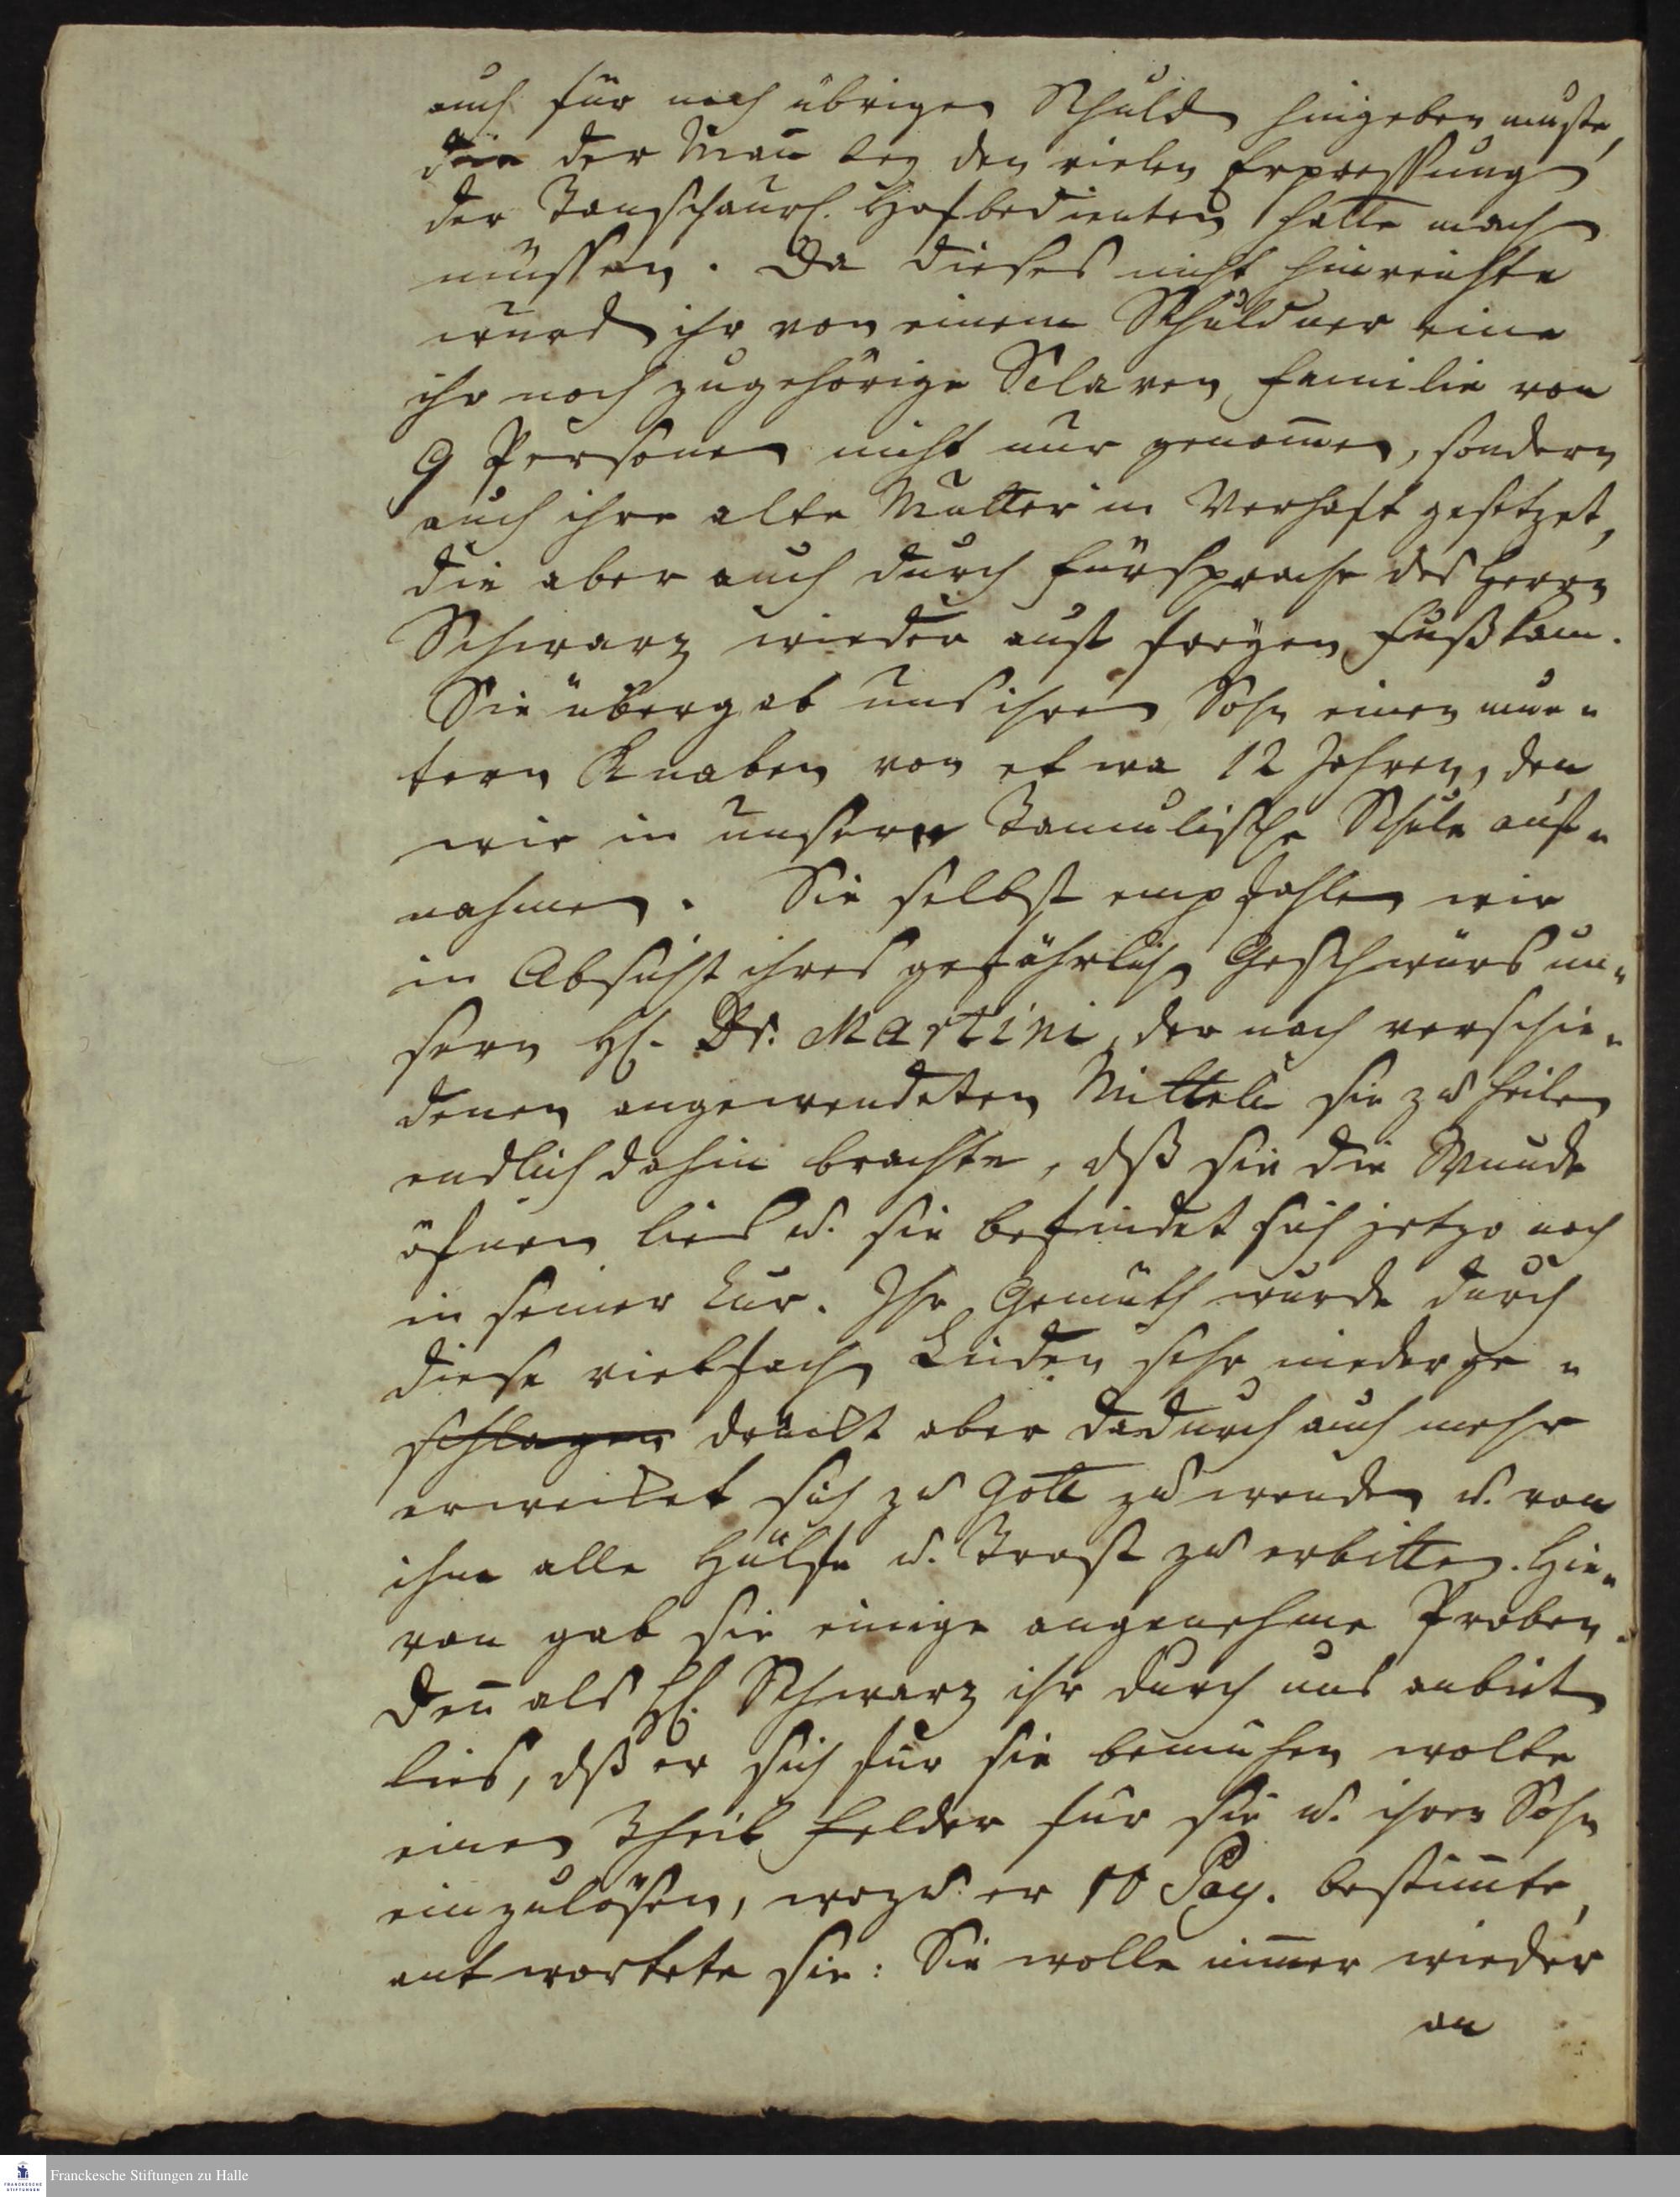 auch für noch übrigen Schulden hingeben muste,
die der Man bey den vielen Erpressungen
der Tanschaurl. Hofbedienten hatte machen
müssen. Da dieses nicht hinreichte
wurden ihr von einem Schuldner eine
ihr noch zugehörige Sclaven familie von
9 Personen nicht nur genom̄en, sondern
auch ihre alte Mutter in Verhaft gesetzet,
die aber auch durch fürsprache des Herrn
Schwarz wieder auf freyen Fuß kam.
Sie übergab uns ihren Sohn einen mun-
tern Knaben von etwa 12 Jahren, den
wir in unsere Tamulische Schule auf-
nahmen. Sie selbst empfohlen wir
in Absicht ihres gefährlichen Geschwürs un-
sern H. Dr. Martini, der nach verschie-
denen angewendeten Mitteln sie zu heilen
endlich dahin brachte, dß sie die Wunde
öfnen lies u. sie befindet sich jetzo noch
in seiner Cur. Ihr Gemüth wurde durch
diese vielfachen Leiden sehr niederge-
schlagen drückt aber dadurch auch mehr
erwecket sich zu Gott zu wenden u. von
ihm alle Hülfe u. Trost zu erbitten. Hie-
von gab sie einige angenehme Proben.
Den̄ als H. Schwarz ihr durch uns anbieten
lies, dß er sich für sie bemühen wolte
einen Theil Felder für sie u. ihren Sohn
einzulösen, wozu er 10 Pag. bestim̄te,
antwortete sie: Sie wolle im̄er wieder
an
Franckesche Stiftungen zu Halle
FRANCKESCHE
STIFTUNGEN